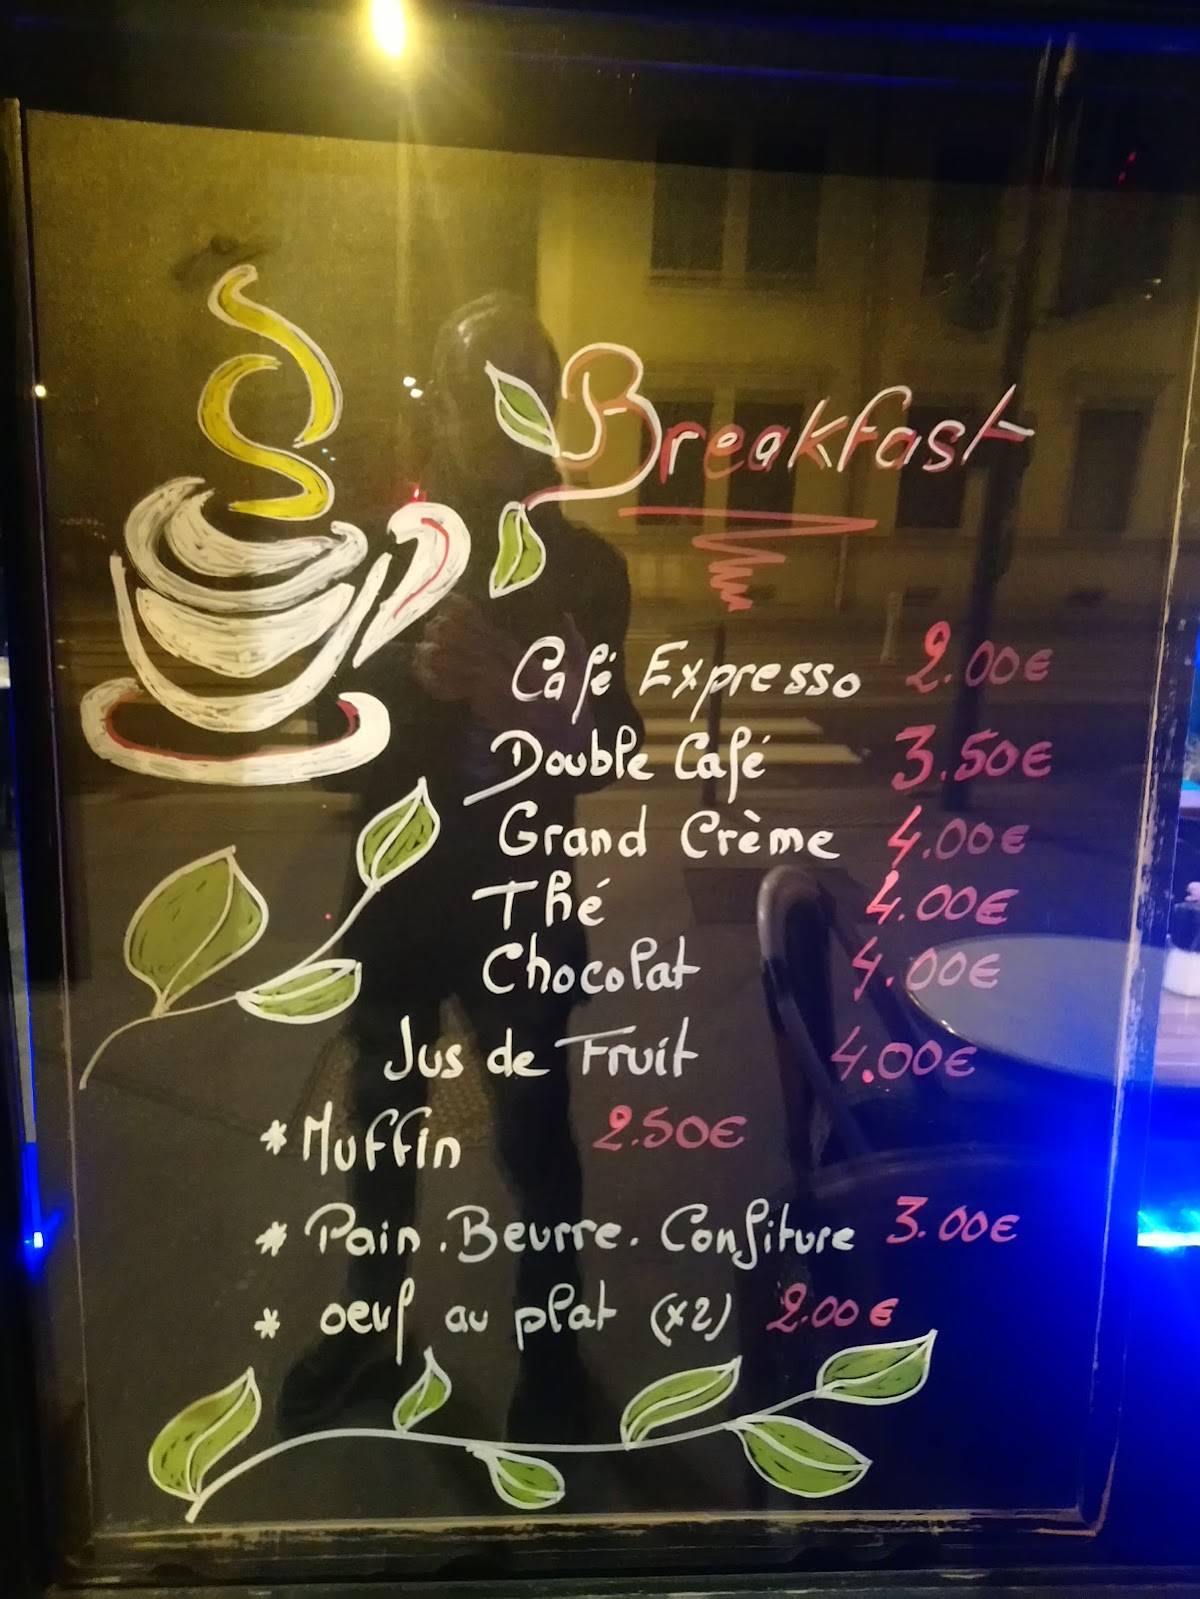 Breakfast
Café Expresso 2.00€
Double Café 3.50€
Grand Crème 4.00€
Thé 4.00€
Chocolat 4.00€
Jus de Fruit 4.00€
* Muffin 2.50€
* Pain . Beurre . Confiture 3.00€
* oeuf au plat (x2) 2.00€